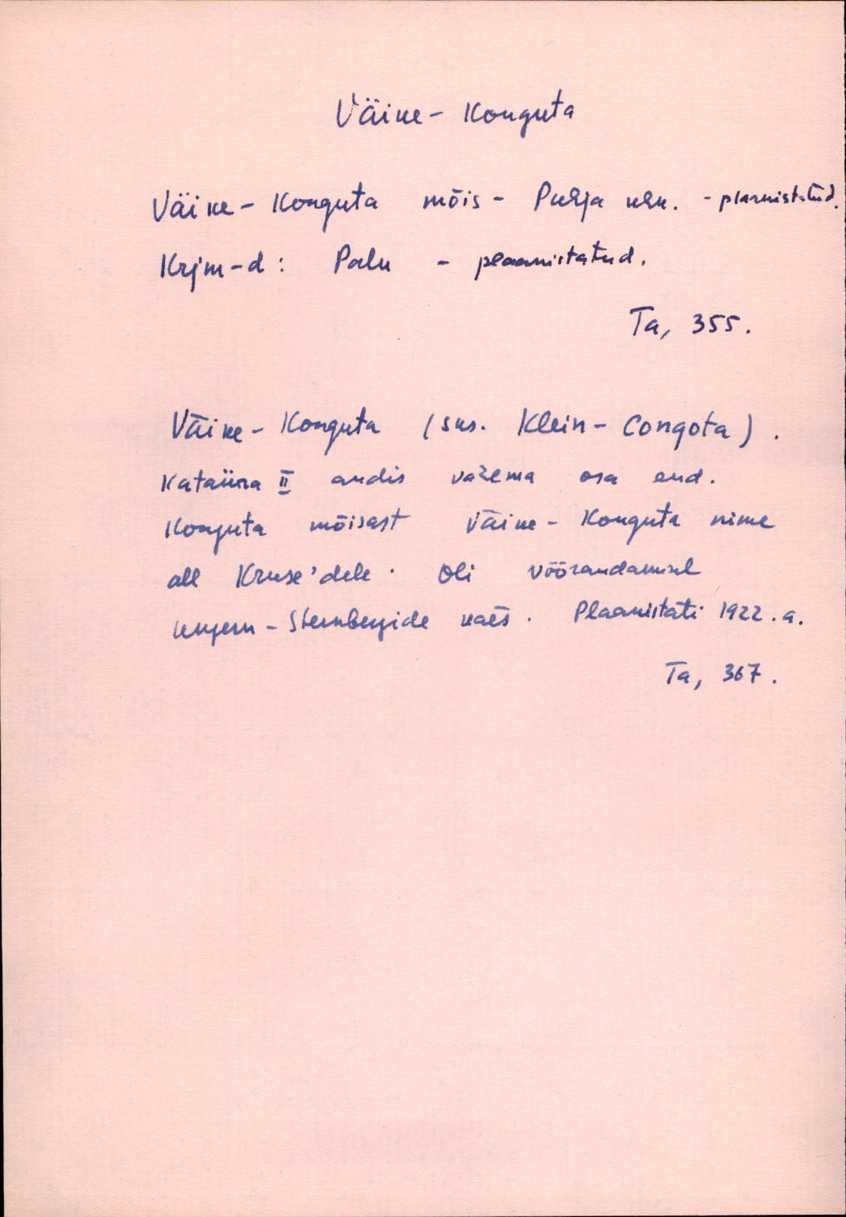 Väike - Konguta
Väike - Konguta mõis - Puhja khk. - plaanistatud.
Krjm-d: Palu - plaanistatud.
Ta, 355.
Väike - Konguta (sks. Klein - Congota).
Katariina II andis vähema osa end.
Konguta mõisast Väike - Konguta nime
all Kruse'dele. Oli võõrandamisel
Ungern - Sternbergide käes. Plaanistati 1922. a.
Ta, 367.